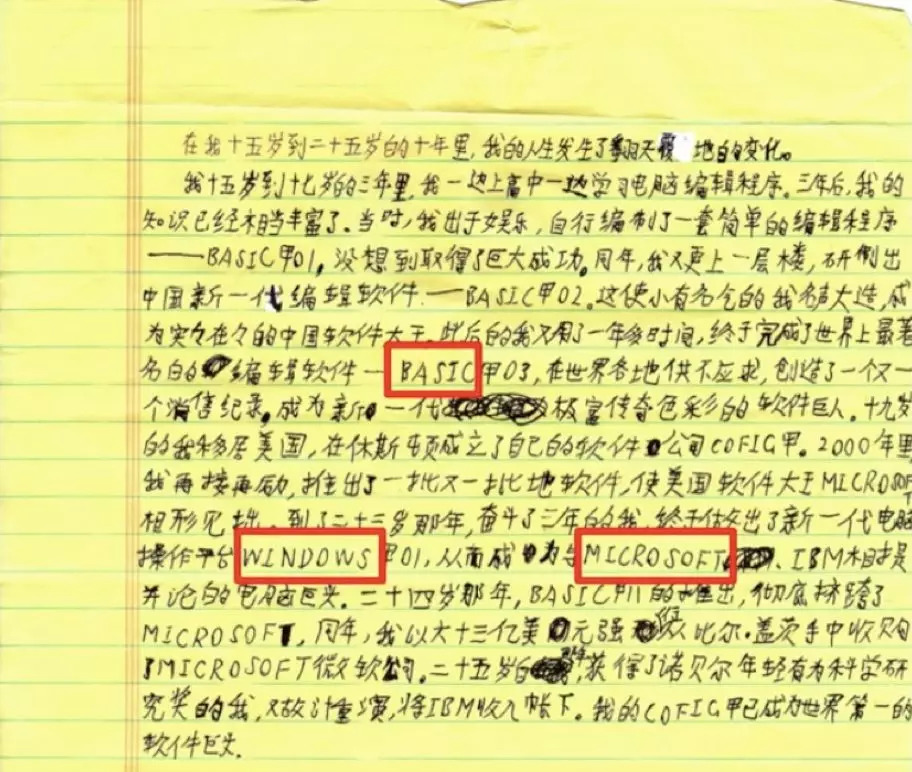 在我十五岁到二十五岁的十年里,我的人生发生了翻天覆地的变化。
我十五岁到十七岁的三年里,我一边上高中一边学习电脑编辑程序。三年后,我的
知识已经相当丰富了。当时,我出于娱乐,自行编制了一套简单的编辑程序
——BASIC甲01,没想到取得了巨大成功。同年,我又更上一层楼,研制出
中国新一代编辑软件——BASIC甲02。这使小有名气的我名声大造,成
为实实在在的中国软件大王。此后的我又用了一年多时间,终于完成了世界上最著
名的编辑软件—BASIC甲03,在世界各地供不应求,创造了一个又一
个消售纪录。成为新一代极富传奇色彩的软件巨人。十九岁
的我移居美国,在休斯顿成立了自己的软件公司COFIG甲。2000年里
我再接再励,推出了一批又一批地软件,使美国软件大王MICROSOFT
相形见拙。到了二十三岁那年,奋斗了三年的我,终于做出了新一代电脑
操作平台WINDOWS甲01,从而成为与MICROSOFT、IBM相提
并论的电脑巨头。二十四岁那年,BASIC甲11的推出,彻底挤跨了
MICROSOFT,同年,我以六十三亿美元强行从比尔·盖茨手中收购
了MICROSOFT微软公司。二十五岁的,获得了诺贝尔年轻有为科学研
究奖的我,又故计重演,将IBM收入帐下。我的COFIG甲已成为世界第一的
软件巨头.